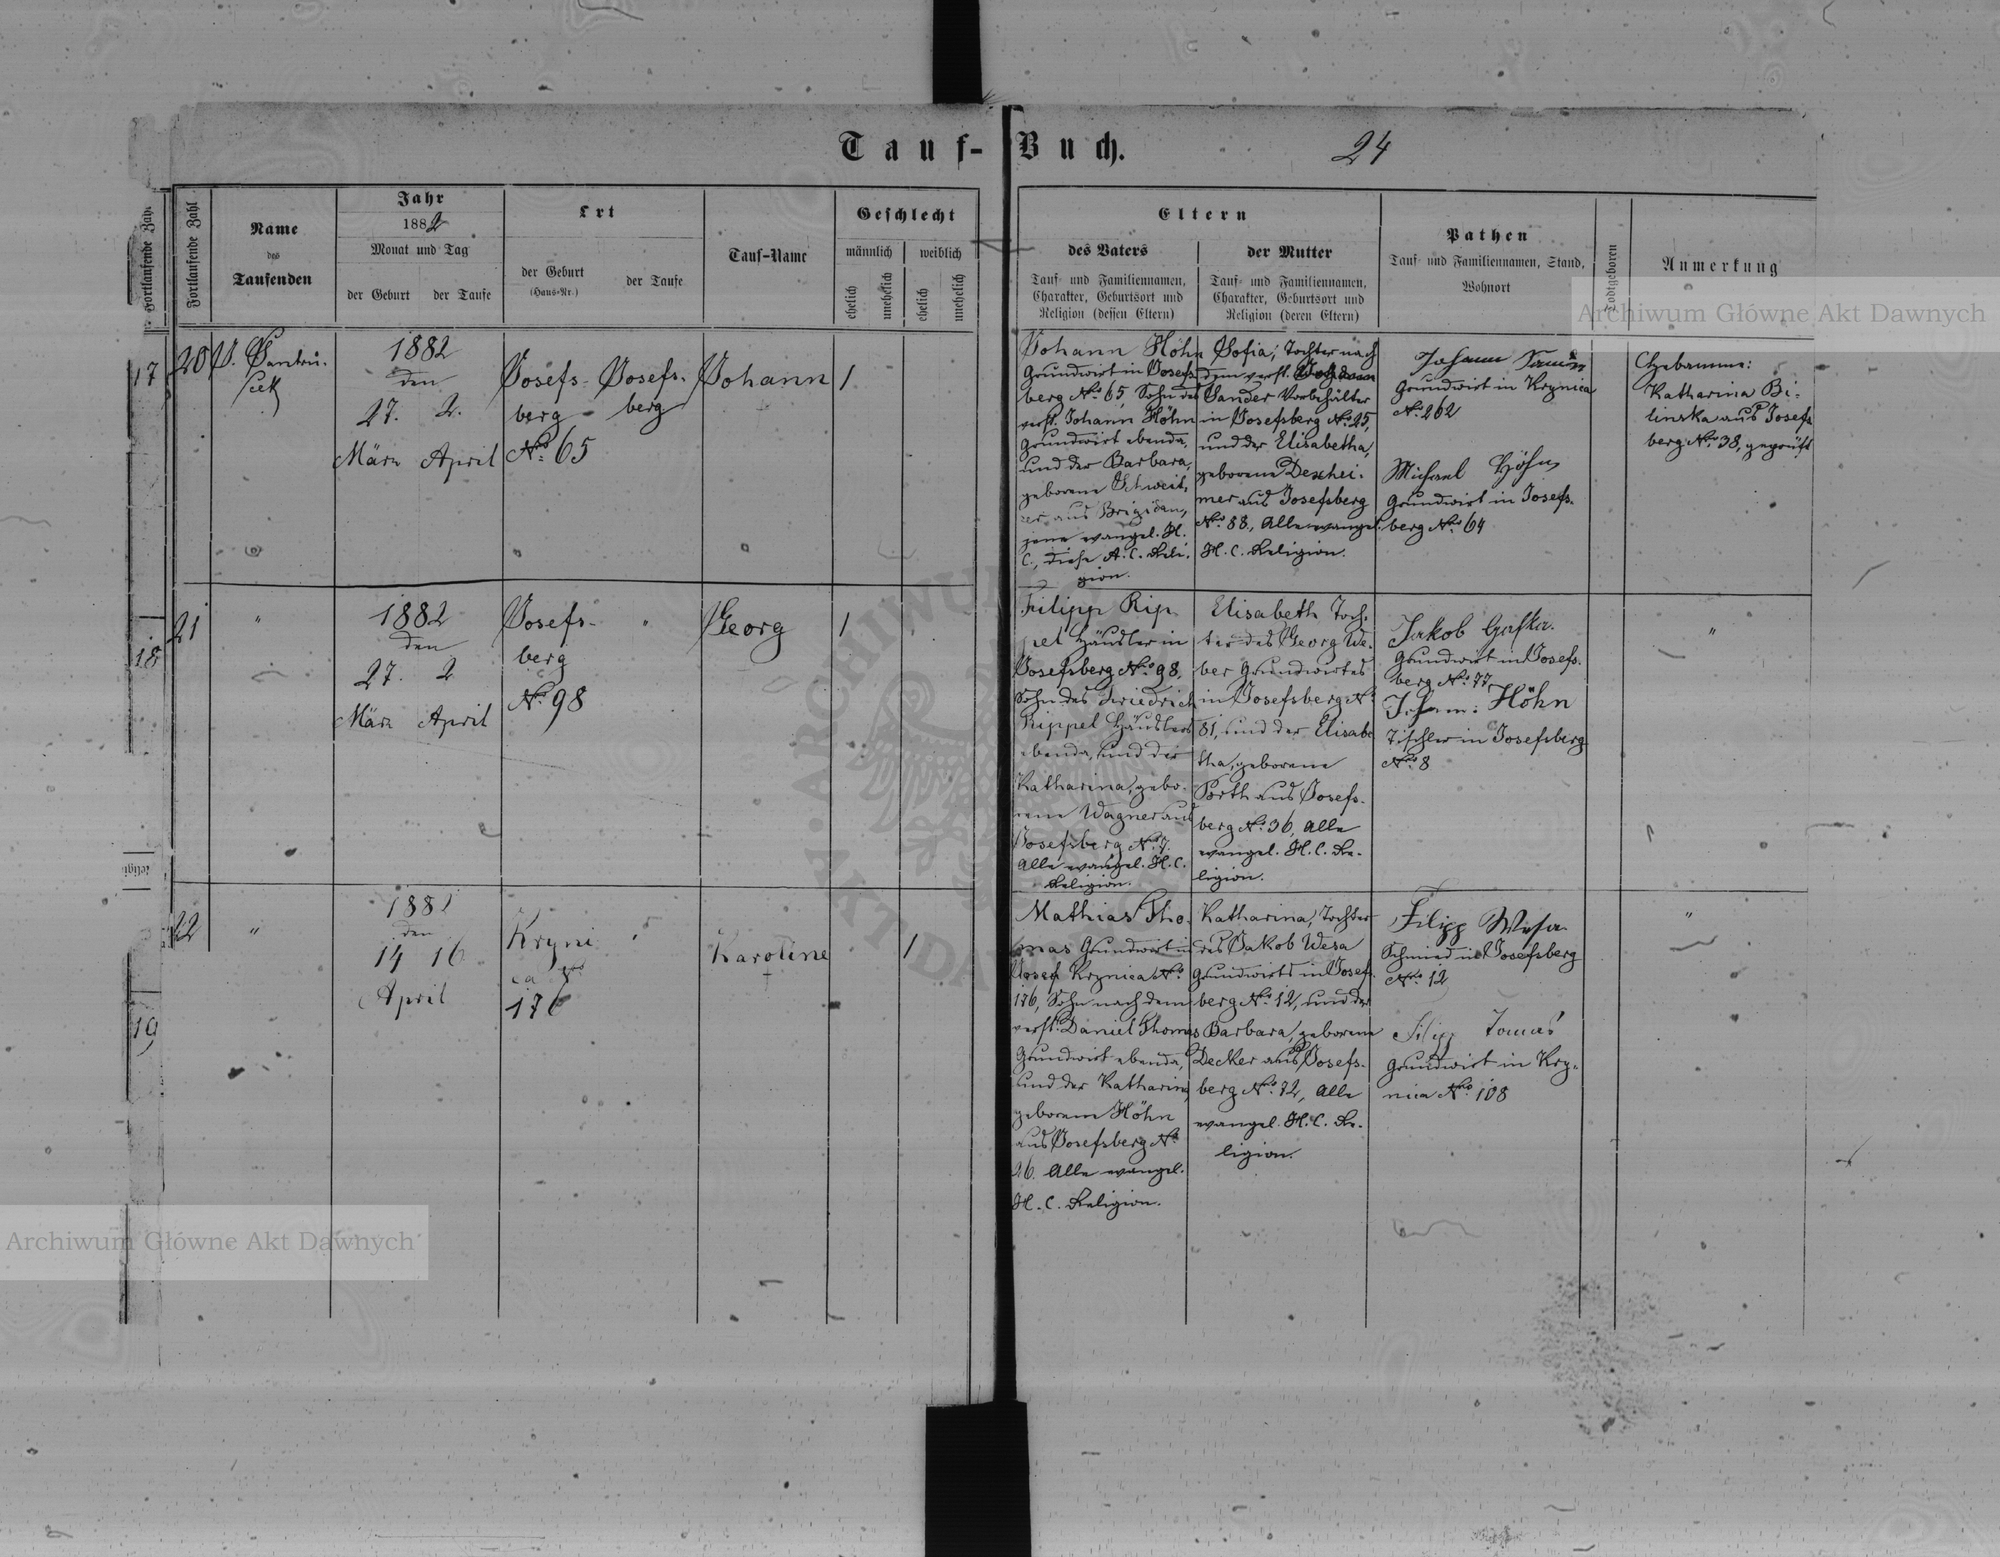 Tauf-Buch.
24
Fortlaufende Zahl
Fortlaufende Zahl
Name
des
Taufenden
Jahr
1882
Monat und Tag
der Geburt
der Taufe
Ort
der Geburt
(Haus-Nr.)
der Taufe
Tauf-Name
Geschlecht
männlich
weiblich
ehelich
unehelich
ehelich
unehelich
Eltern
des Vaters
Tauf- und Familiennamen,
Charakter, Geburtsort und
Religion (dessen Eltern)
der Mutter
Tauf- und Familiennamen,
Charakter, Geburtsort und
Religion (deren Eltern)
Pathen
Tauf- und Familiennamen, Stand,
Wohnort
Todtgeboren
Anmerkung
Archiwum Główne Akt Dawnych
17
20
1882
den
27. 2.
März April
Josefs-
berg
No. 65
Josefs-
berg
Johann
1
Johann Höhn
Grundwirt in Josefs
berg No. 65, Sohn des
verst. Johann Höhn
Grundwirt ebenda,
und der Barbara,
geborene Schweit,
zer aus Brigidau,
jene evangel. H.
C., diese A. C. Reli-
gion.
Sofia, Tochter nach
dem verst.
Sander Vorbehälter
in Josefsberg No. 25,
und der Elisabetha,
geborene Dexhei-
mer aus Josefsberg
No. 88, Alle evangel.
H. C. Religion.
Johann
Grundwirt in Krynica
No. 262
Michael Höhn
Grundwirt in Josefs-
berg No. 64
Hebamme:
Katharina Bi-
linska aus Josefs
berg No. 38, geprüft
18
21
"
1882
den
27. 2
März April
Josefs-
berg
No. 98
"
Georg
1
Filipp Rip
pel Häusler in
Josefsberg No. 98,
Sohn des Friedrich
Rippel Häuslers
ebenda, und der
Katharina, gebo-
rene Wagner aus
Josefsberg No. 7.
Alle evangel. H. C.
Religion.
Elisabeth Toch-
ter des Georg We-
ber Grundwirtes
in Josefsberg No
81, und der Elisabe
tha, geborene
Porth aus Josefs-
berg No. 36, Alle
evangel. H. C. Re-
ligion.
Jakob
Grundwirt in Josefs-
berg No. 77
Johann: Höhn
Tischler in Josefsberg
No. 8
"
22
"
1882
den
14 16
April
Kryni
ca No
176
"
Karoline
†
1
Mathias Tho-
mas Grundwirt in
Josef Krynica No.
176, Sohn nach dem
verst. Daniel Thomas
Grundwirt ebenda,
und der Katharina,
geborene Höhn
aus Josefsberg No.
26. Alle evangel.
H. C. Religion.
Katharina, Tochter
des Jakob Wesa
Grundwirts in Josef-
berg No. 12, und der
Barbara, geborene
Decker aus Josefs-
berg No. 72, Alle
evangel. H. C. Re-
ligion.
Filipp Wesa
Schmied in Josefsberg
No. 12
Filipp Tomas
Grundwirt in Kry-
nica No. 108
"
19
Archiwum Główne Akt Dawnych
ARCHIWUM
AKT DAWNYCH